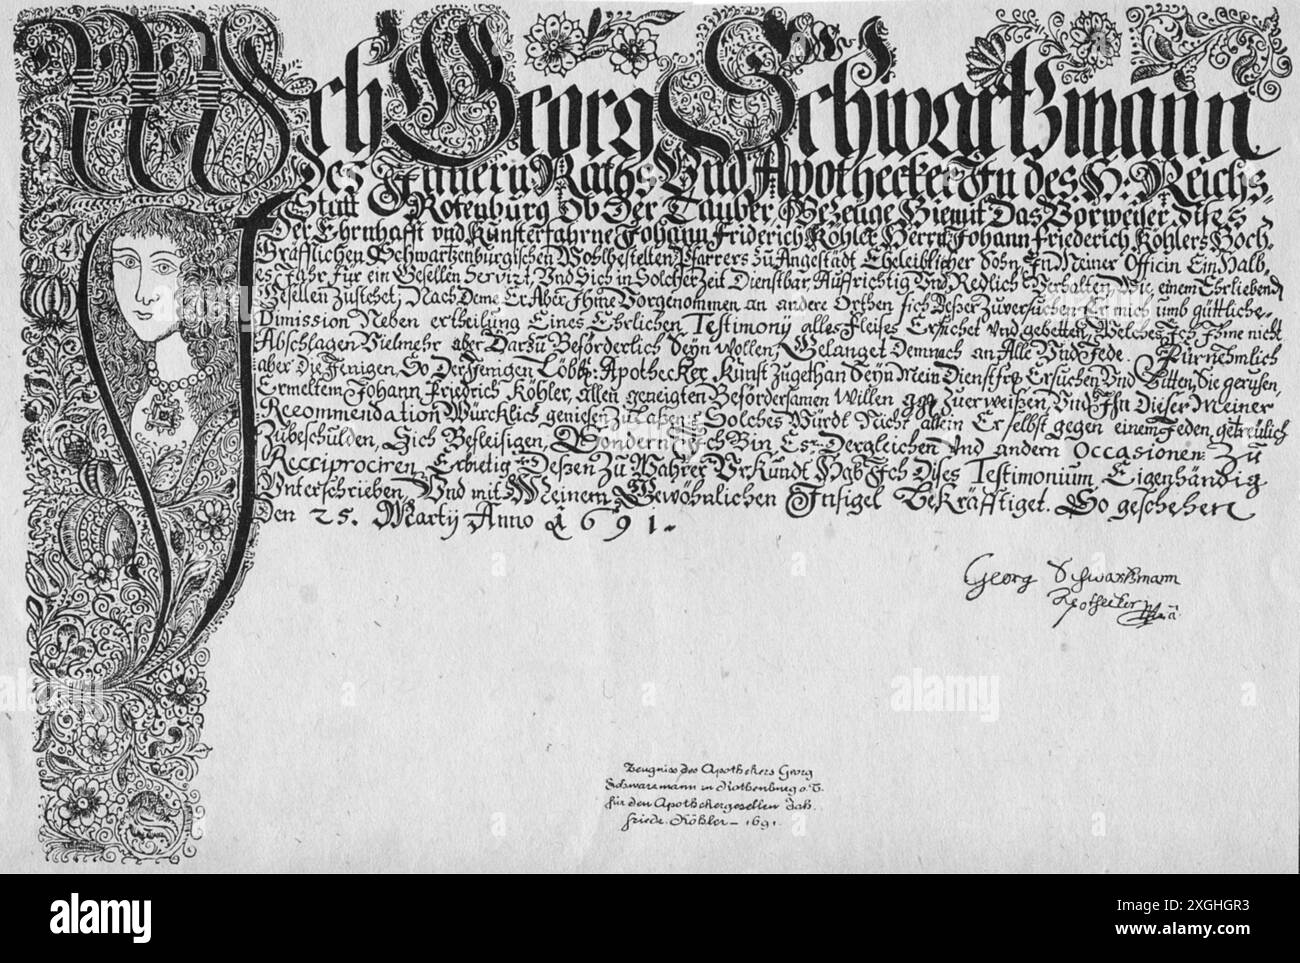 Ich Georg Schwartzmann
des Innern Raths Und Apothecker In des H: Reichs-
Statt Rotenburg Ob Der Tauber Bezeuge Hiemit Das Vorweiser dises
Der Ehrnhafft und Kunsterfahrne Johann Friderich Köhler Herrn Johann Friederich Köhlers Hoch-
Gräfflichen Schwartzenburgischen Wohlbestelten Pfarrers zu Angestadt Eheleiblicher Sohn, In Meiner Officin Ein Halb-
es Jahr für ein Gesellen Servirt, Und Sich in Solcher Zeit Dienstbar, Auffrichtig Und Redlich Verhalten, Wie einem Ehrliebenden
Gesellen Zustehet; Nach Deme Er Aber Ihme Vorgenommen an andere Orthen sich Besser Zuversuchen Er mich umb güttliche-
Dimission Neben ertheilung Eines Ehrlichen Testimony alles Fleises Ersuchet Und gebetten, Welches Ich Ihme nicht
Abschlagen Vielmehr aber Darzu Beförderlich Seyn Wollen, Gelanget Demnach an Alle Und Jede. Fürnehmlich
aber Die Jenigen, So Der Jenigen Löbl: Apothecker Kunst Zugethan Seyn Mein Dienstfr: Ersuchen Und Bitten, Sie geruhen,
Ermeltem Johann Friedrich Köhler, allen geneigten Befördersamen Willen Zuerweißen, Und Ihn Dieser Meiner
Recommendation Würcklich genießen Zu Laßen, Solches Würdt Nicht allein Er Selbst gegen einem Jeden, getreulich
Zubeschulden, Sich Befleisigen, Sondern Ich Bin Es Dergleichen Und andern Occasionen Zu
Recciprociren Erbietig Deßen Zu Wahrer Urkundt Hab Ich Dises Testimonium Eigenhändig
Unterschrieben, Und mit Meinem Gewöhnlichen Insigel Bekräfftiget. So geschehen
Den 25. Martij Anno 1691.
Georg Schwartzmann
Apothecker
Zeugniss des Apothekers Georg
Schwarzmann in Rothenburg o. T.
für den Apothekergesellen Joh.
Friede. Köhler – 1691.
alamy
Image ID: 2XGHGR3
www.alamy.com